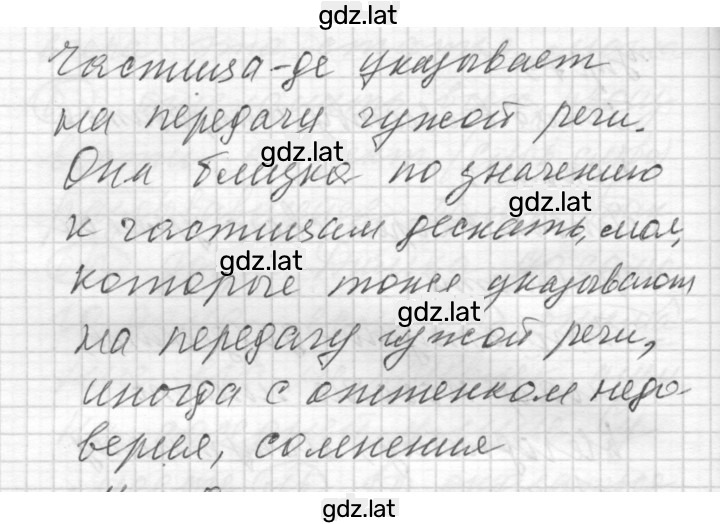 gdz.lat
Частица -де указывает
на передачу чужой речи.
gdz.lat
Она близка по значению
gdz.lat
к частицам дескать, мол,
gdz.lat
которые тоже указывают
gdz.lat
на передачу чужой речи,
иногда с оттенком недо-
верия, сомнения
gdz.lat